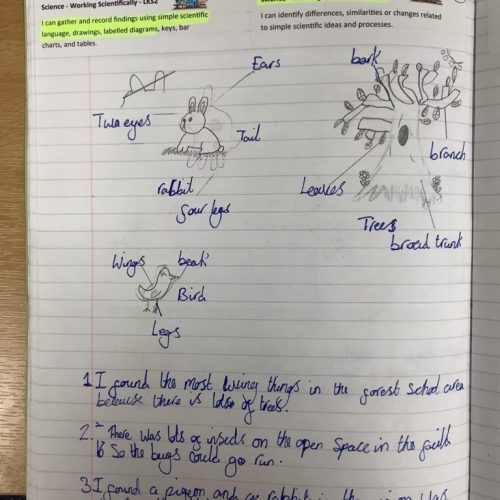 Science - Working Scientifically - LKS2
I can gather and record findings using simple scientific
language, drawings, labelled diagrams, keys, bar
charts, and tables.
I can identify differences, similarities or changes related
to simple scientific ideas and processes.
Ears
bark
Two eyes
Tail
branch
rabbit
Leaves
four legs
Trees
broad trunk
Wings
beak
Bird
Legs
1. I found the most living things in the forest school area
because there is lots of trees.
2. There was lots of insects on the open space in the
So the bugs could go run.
3. I found a pigeon and a rabbit in the